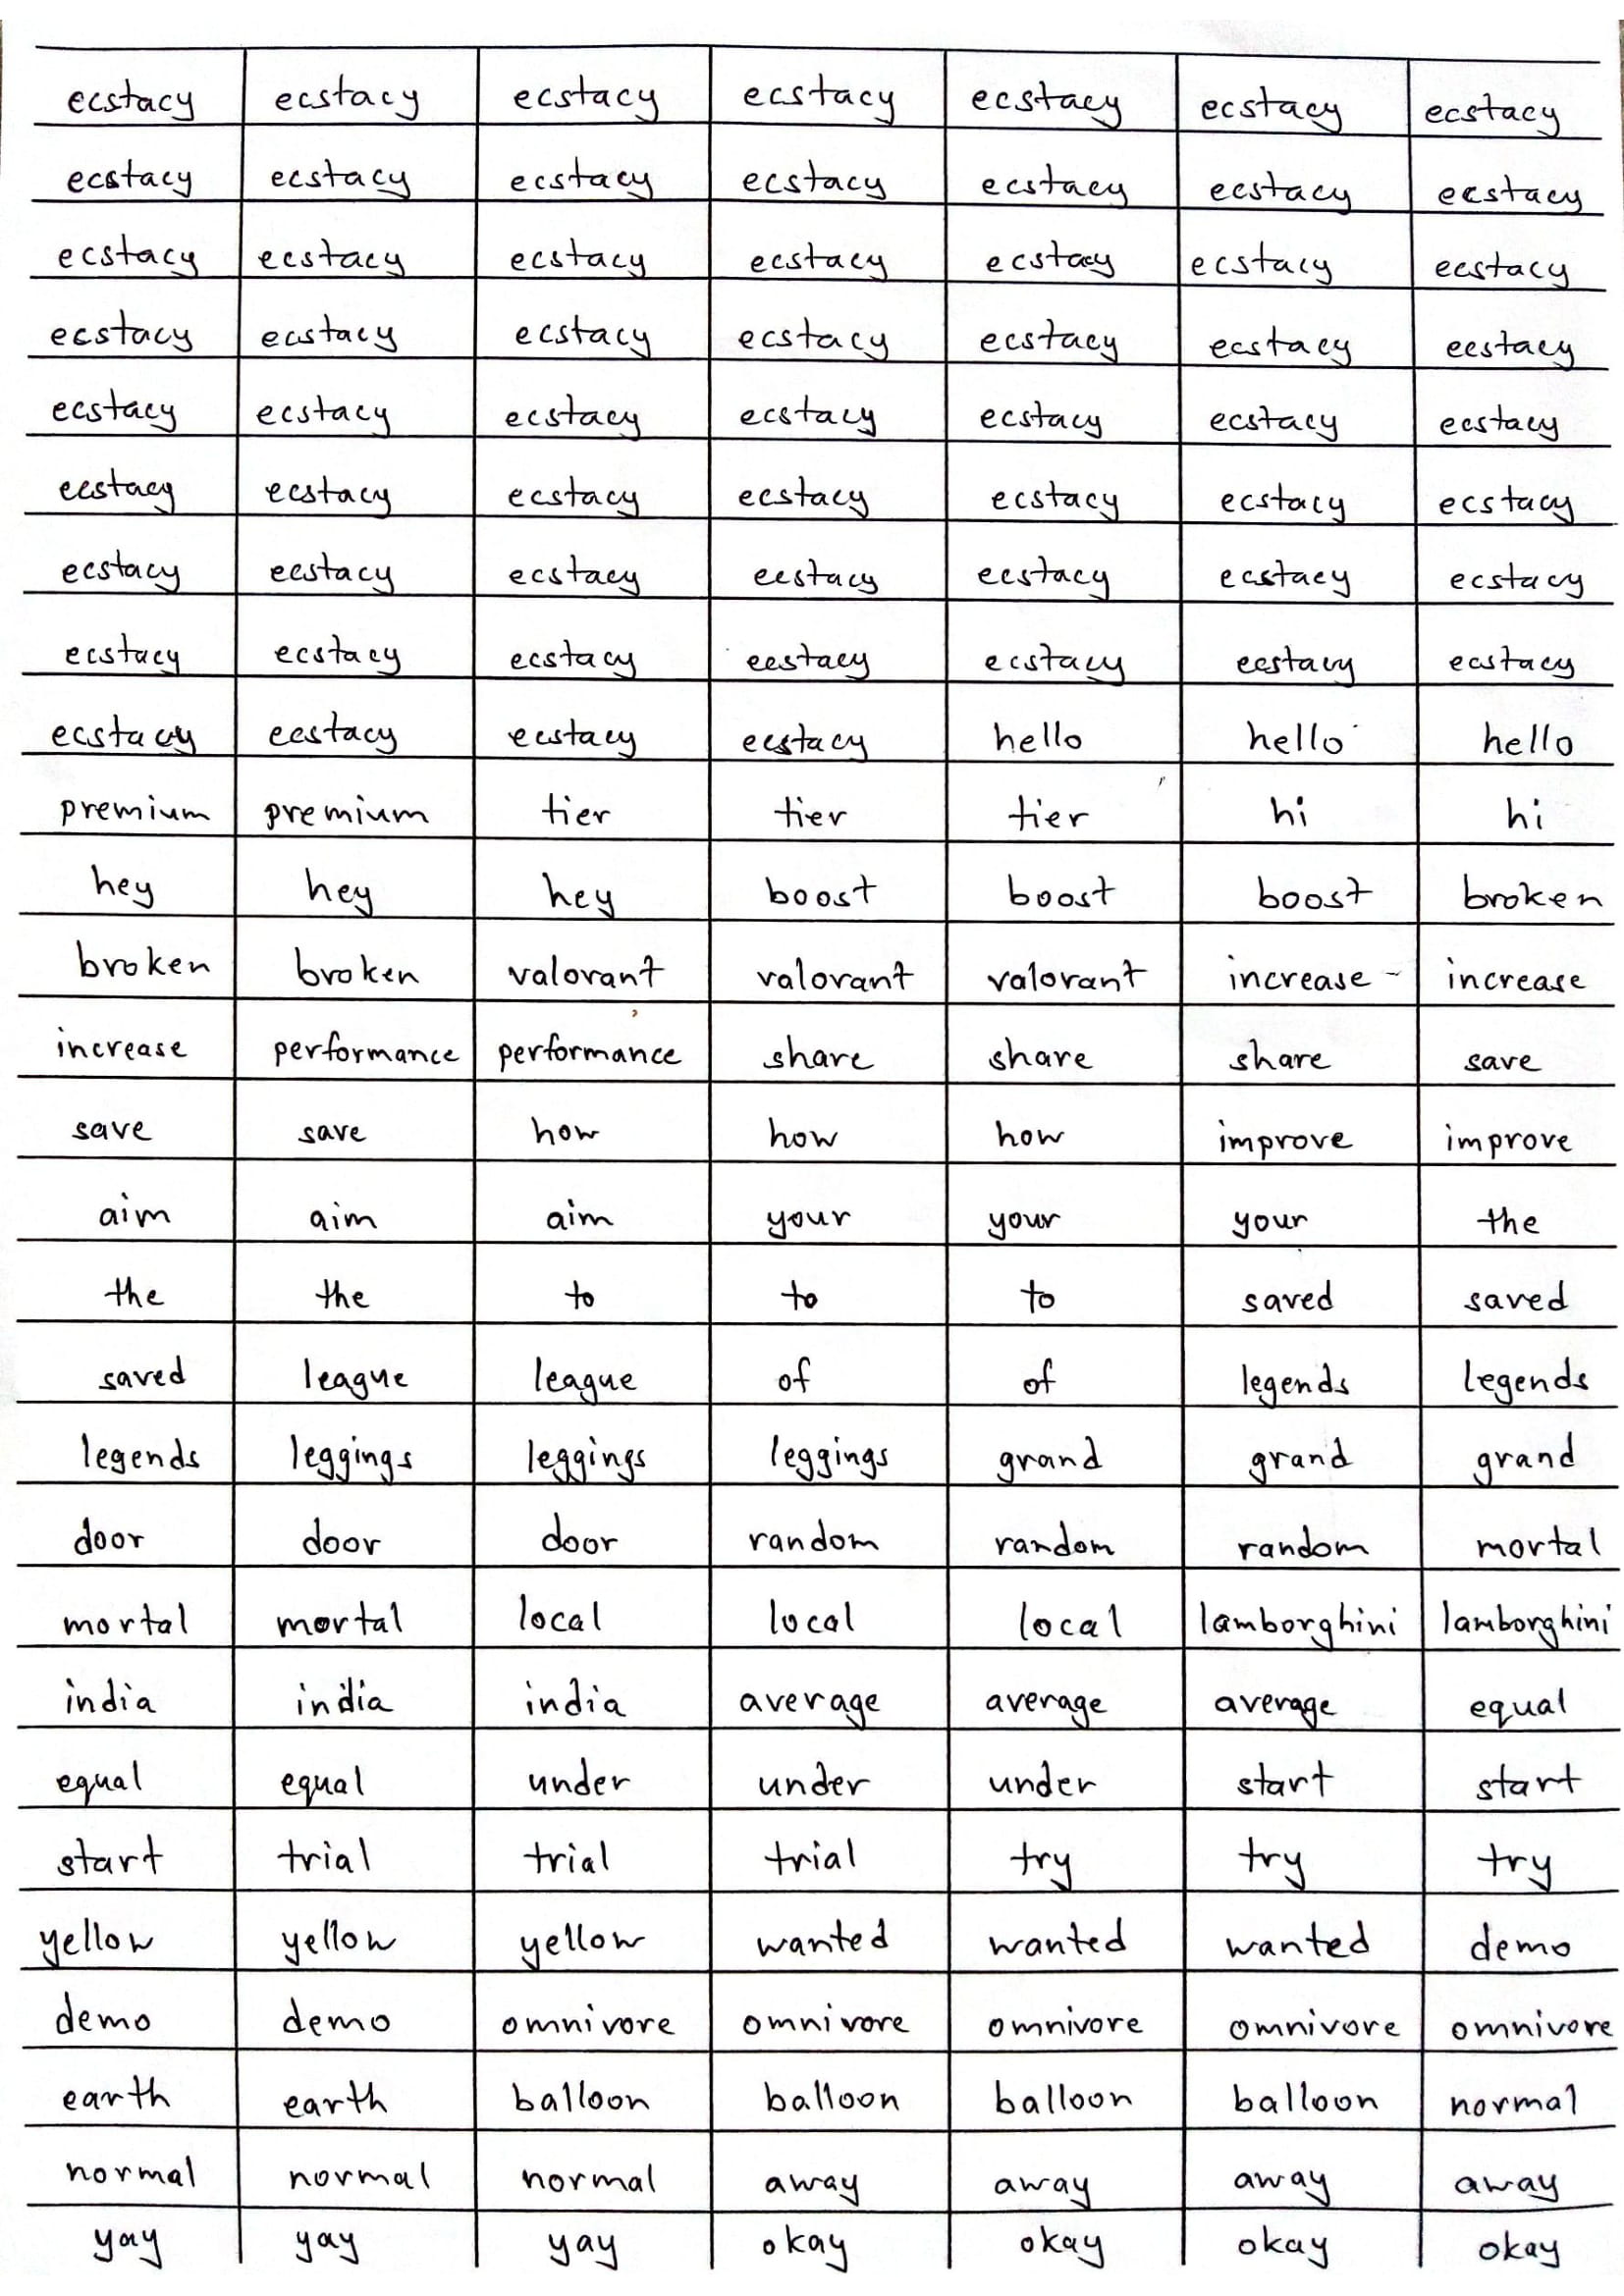 ecstacy ecstacy ecstacy ecstacy ecstacy ecstacy ecstacy
ecstacy ecstacy ecstacy ecstacy ecstacy ecstacy ecstacy
ecstacy ecstacy ecstacy ecstacy ecstacy ecstacy ecstacy
ecstacy ecstacy ecstacy ecstacy ecstacy ecstacy ecstacy
ecstacy ecstacy ecstacy ecstacy ecstacy ecstacy ecstacy
ecstacy ecstacy ecstacy ecstacy ecstacy ecstacy ecstacy
ecstacy ecstacy ecstacy ecstacy ecstacy ecstacy ecstacy
ecstacy ecstacy ecstacy ecstacy ecstacy ecstacy ecstacy
ecstacy ecstacy ecstacy ecstacy hello hello hello
premium premium tier tier tier hi hi
hey hey hey boost boost boost broken
broken broken valorant valorant valorant increase increase
increase performance performance share share share save
save save how how how improve improve
aim aim aim your your your the
the the to to to saved saved
saved league league of of legends legends
legends leggings leggings leggings grand grand grand
door door door random random random mortal
mortal mortal local local local lamborghini lamborghini
india india india average average average equal
equal equal under under under start start
start trial trial trial try try try
yellow yellow yellow wanted wanted wanted demo
demo demo omnivore omnivore omnivore omnivore omnivore
earth earth balloon balloon balloon balloon normal
normal normal normal away away away away
yay yay yay okay okay okay okay